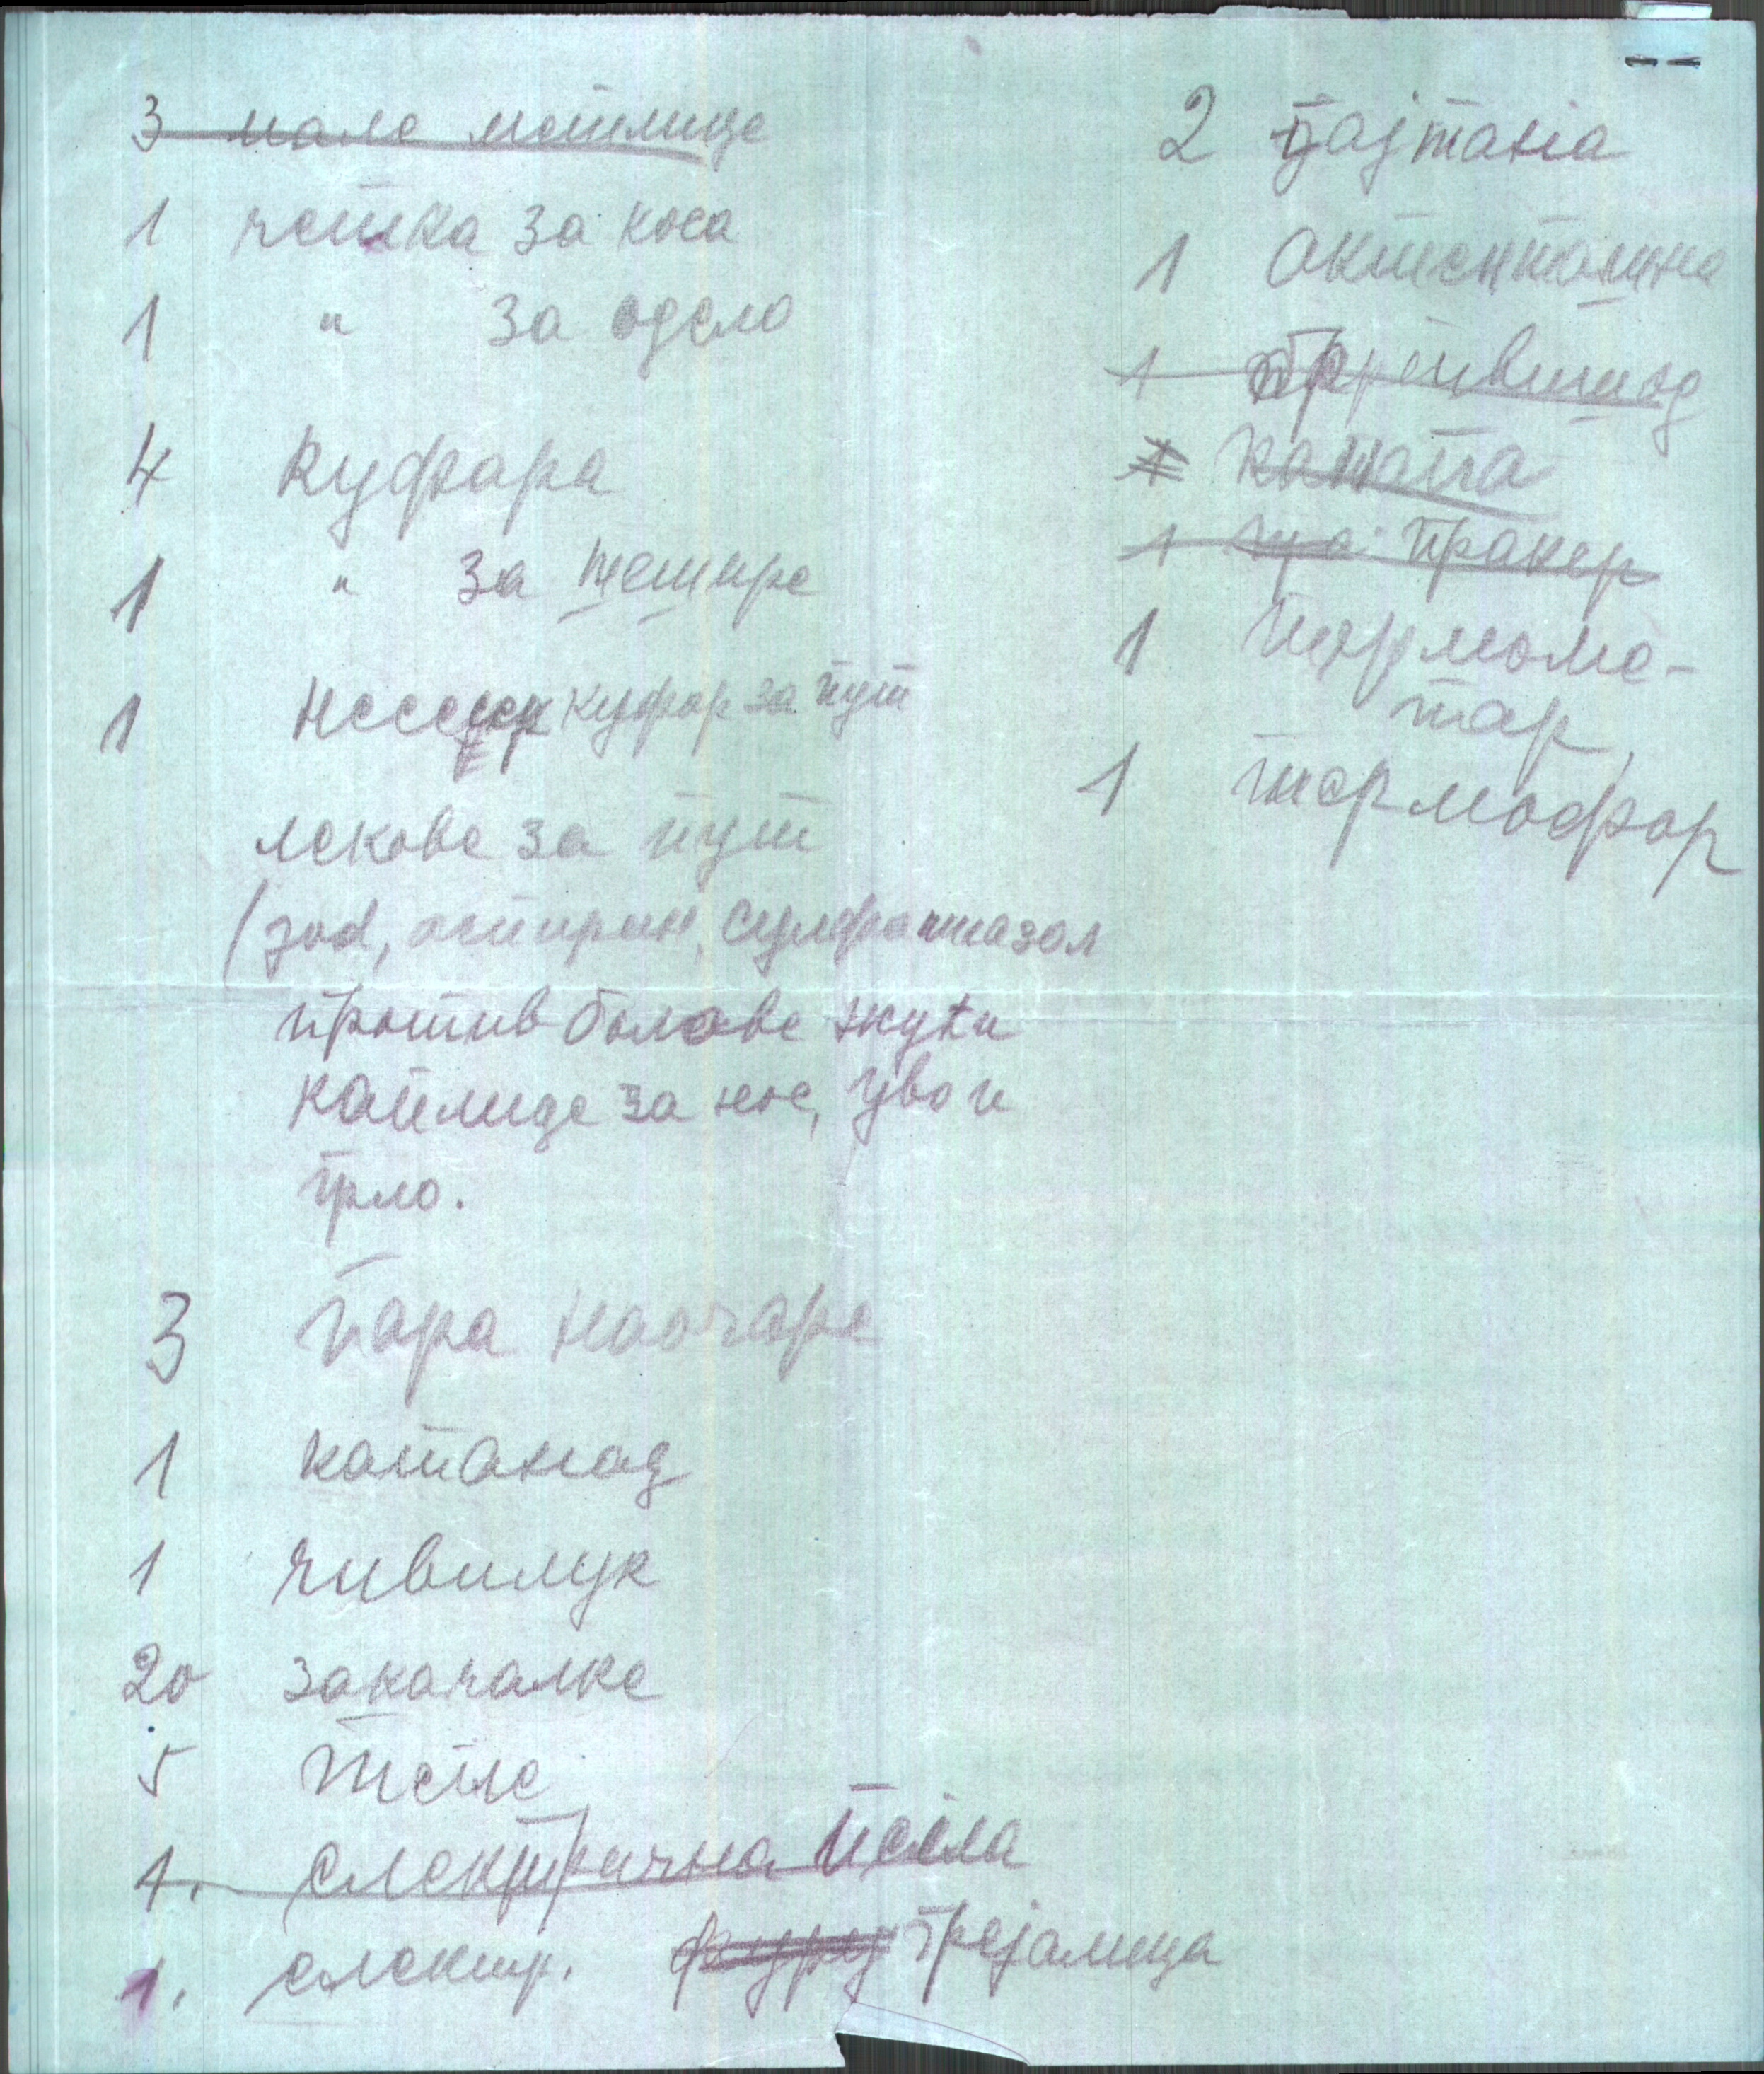 3 мале метлице
1 четка за коса
1 " за одело
4 куфара
1 " за шешире
1 несесер куфор за пут
лекове за пут
(јод, аспирин, сулфатиазол
против болове жући
капљице за нос, уво и
грло.
3 пара наочаре
1 катанац
1 чивилук
20 закачалке
5
1. електрична пегла
1. електр. грејалица
2 гајтана
1 актенташна
1
1
1 пракер
1 термоме-
тар
1 термофор